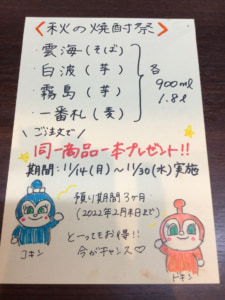 秋の焼酎祭
・雲海(そば)
・白波(芋)
・霧島(芋)
・一番札(麦)
各
900ml
1.8l
ご注文で
同一商品一本プレゼント!!
期間:11/14(月)~11/30(水)実施
預り期間3ヶ月
(2022年2月末日まで)
とーってもお得!!
今がチャンス♡
コキン
ドキン